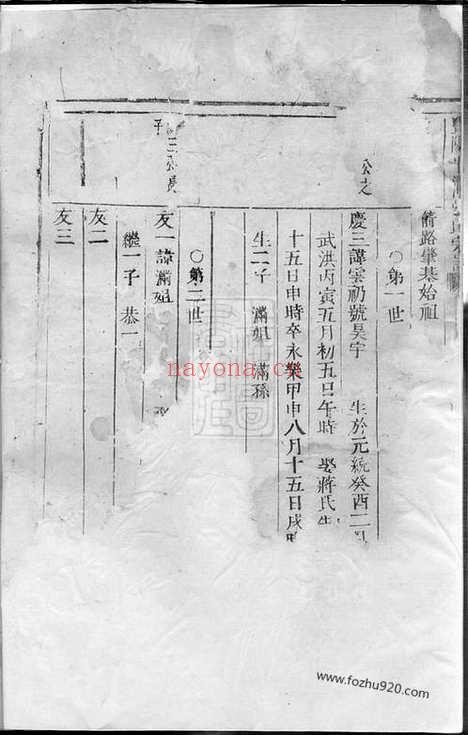 衕路肇基始祖
○第一世
公之
慶三諱雲礽號昊宇　生於元統癸酉二
武洪丙寅五月初五日午時　娶蔣氏生
十五日申時卒永樂甲申八月十五日戌時
生二子　滿姐　滿孫
○第二世
三公長
子
友一諱滿姐
繼一子　恭一
友二
友三
nayona.cn
www.fozhu920.com